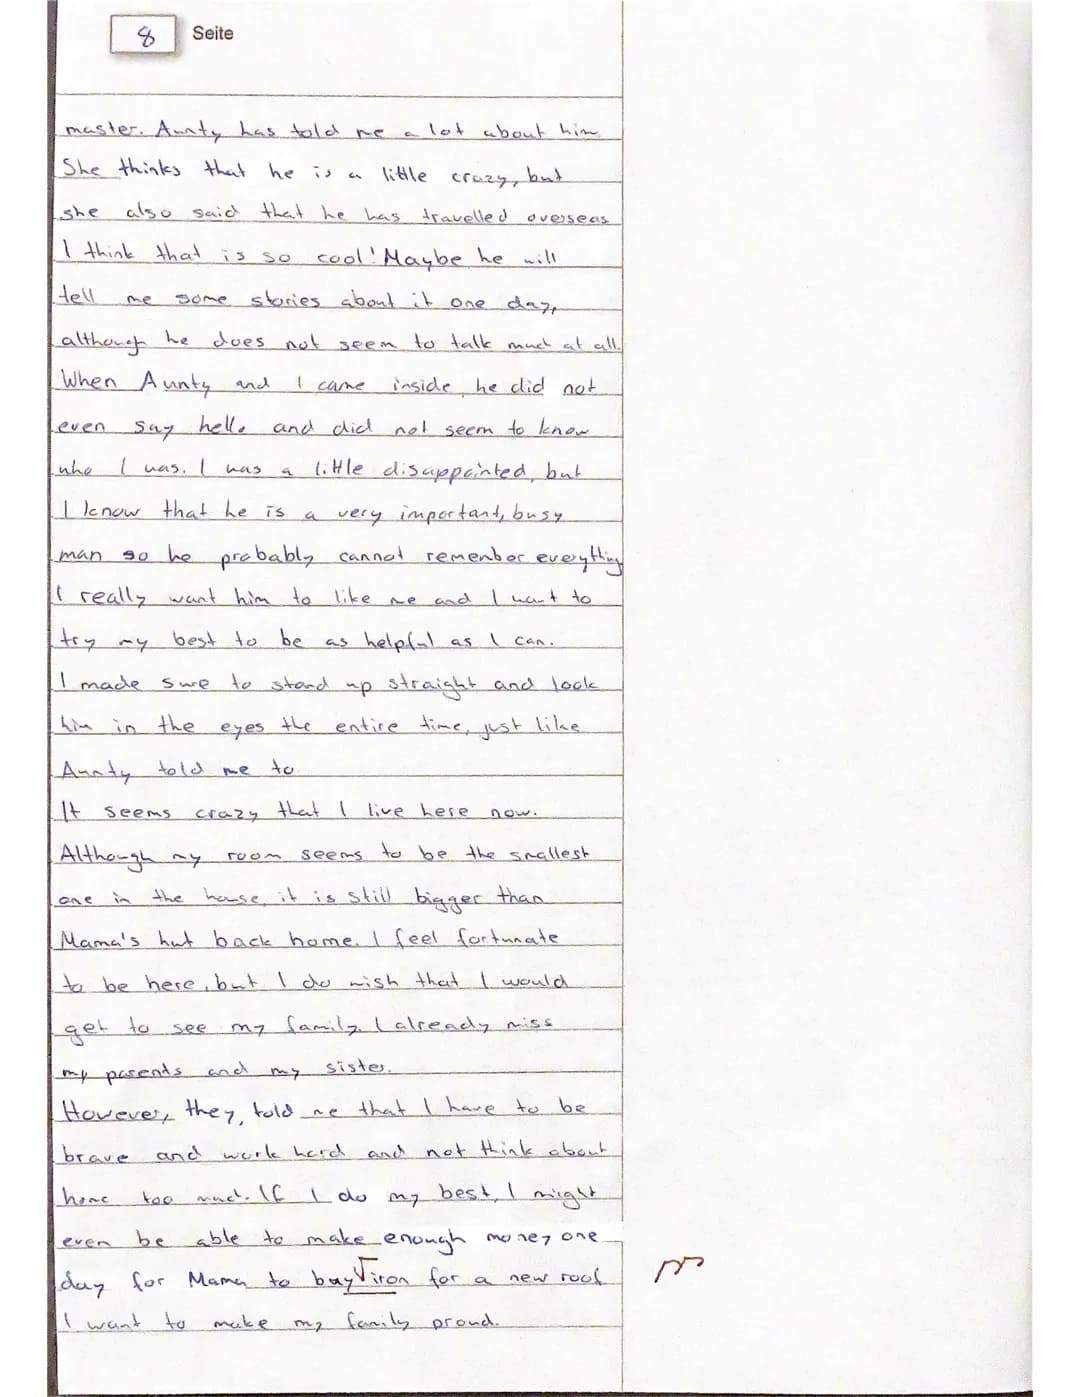 8 Seite
master. Aunty has told me a lot about him.
She thinks that he is a little crazy, but
she also said that he has travelled overseas.
I think that is so cool! Maybe he will
tell me some stories about it one day,
although he does not seem to talk much at all.
When Aunty and I came inside, he did not
even say hello and did not seem to know
who I was. I was a little disappointed, but
I know that he is a very important, busy
man so he probably cannot remember everything
I really want him to like me and I want to
try my best to be as helpful as I can.
I made sure to stand up straight and look
him in the eyes the entire time, just like
Aunty told me to.
It seems crazy that I live here now.
Although my room seems to be the smallest
one in the house, it is still bigger than
Mama's hut back home. I feel fortunate
to be here, but I do wish that I would
get to see my family. I already miss
my parents and my sister.
However, they, told me that I have to be
brave and work hard and not think about
home too much. If I do my best, I might
even be able to make enough money one
day for Mama to buy iron for a new roof
I want to make my family proud.